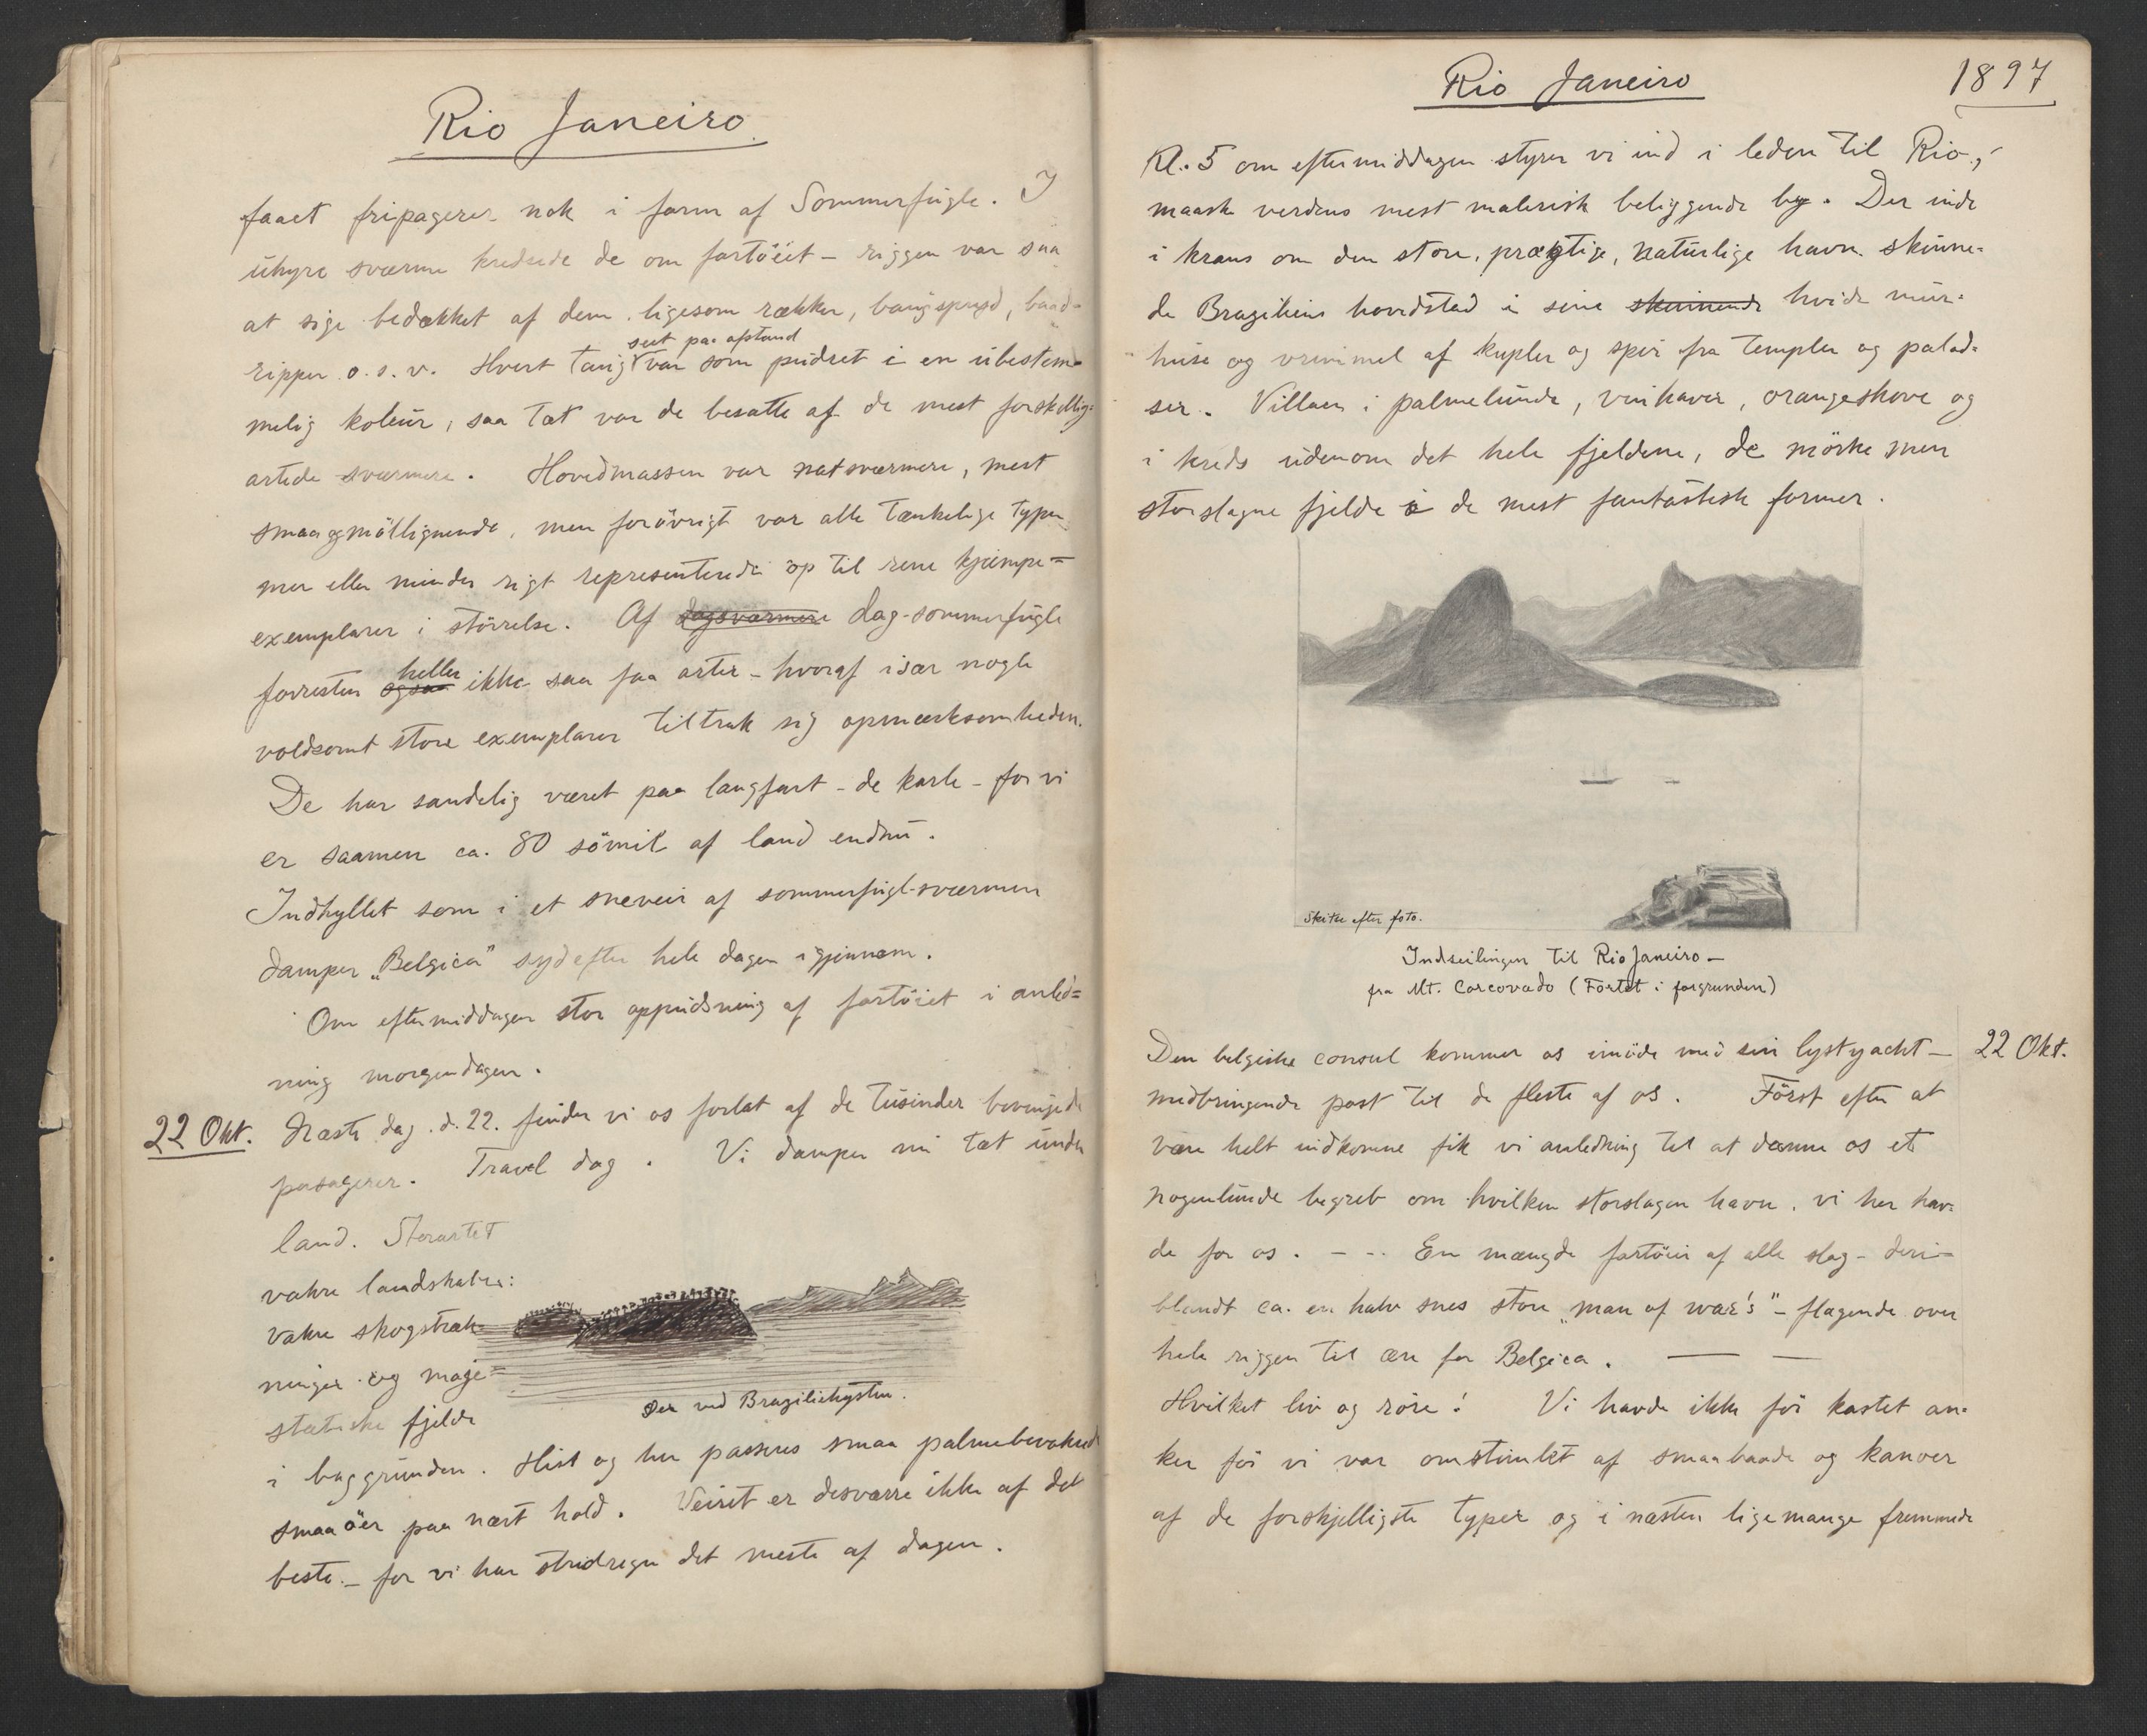 Rio Janeiro
faaet fripagerer nok i form af Sommerfugle. I
uhyre sværme kredsede de om fartöiet – riggen var saa
at sige bedækket af dem ligesom rækker, baugspryd, baad-
ripper o. s. v. Hvert taug var som pudset i en ubestem-
seet paa afstand
melig koleur, saa tæt var de besatte af de mest forskellig-
artede sværmere. Hovedmassen var natsværmere, mest
smaa og möllignende, men forövrigt var alle tænkelige typer
mer eller mindre rigt representerede op til rene kjæmpe=
exemplarer i störrelse. Af dagsværmere dag-sommerfugle
forresten ogsaa heller ikke saa faa arter – hvoraf især nogle
voldsomt store exemplarer tiltrak sig opmærksomheden.
De har sandelig været paa langfart – de karle – for vi
er saamen ca. 80 sömil af land endnu.
Indhyllet som i et sneveir af sommerfugl-sværmen
damper „Belgica" sydefter hele dagen igjennem.
Om eftermiddagen stor oppudsning af fartöiet i anled=
ning morgendagen.
22 Okt. Næste dag d. 22. finder vi os forlat af de tusinder bevingede
passagerer. Travel dag. Vi damper nu tæt under
land. Storartet
vakre landskaber:
vakre skogstræk-
ninger og maje=
stætiske fjelde
Öer ved Braziliekysten.
i baggrunden. Hist og her passeres smaa palmebevoksede
smaaöer paa nært hold. Veiret er desværre ikke af det
beste – for vi har stridregn det meste af dagen.
Rio Janeiro 1897
Kl. 5 om eftermiddagen styrer vi ind i leden til Rio,
maaske verdens mest malerisk beliggende by. Der inde
i krans om den store, prægtige, naturlige havn skinne-
de Braziliens hovedstad i sine skinnende hvide mur-
huse og vrimmel af kupler og spir fra templer og palad-
ser. Villaen i palmelunde, vinhaver, orangeskove og
i kreds udenom det hele fjeldene, de mörke men
storslagne fjelde i de mest fantastiske former.
Skitse efter foto.
Indseilingen til Rio Janeiro –
fra Mt. Corcovado (Fortet i forgrunden)
Den belgiske consul kommer os imöde med sin lystyacht – 22 Okt.
medbringende post til de fleste af os. Först efter at
være helt indkomne fik vi anledning til at danne os et
nogenlunde begreb om hvilken storslagen havn vi her hav-
de for os. – -- En mængde fartöier af alle slag – deri-
blandt ca. en halv snes store „man of war's" – flagende over
hele riggen til ære for Belgica. — —
Hvilket liv og röre! Vi havde ikke för kastet an-
ker för vi var omstimlet af smaabaade og kanoer
af de forskjelligste typer og i næsten ligemange fremmede